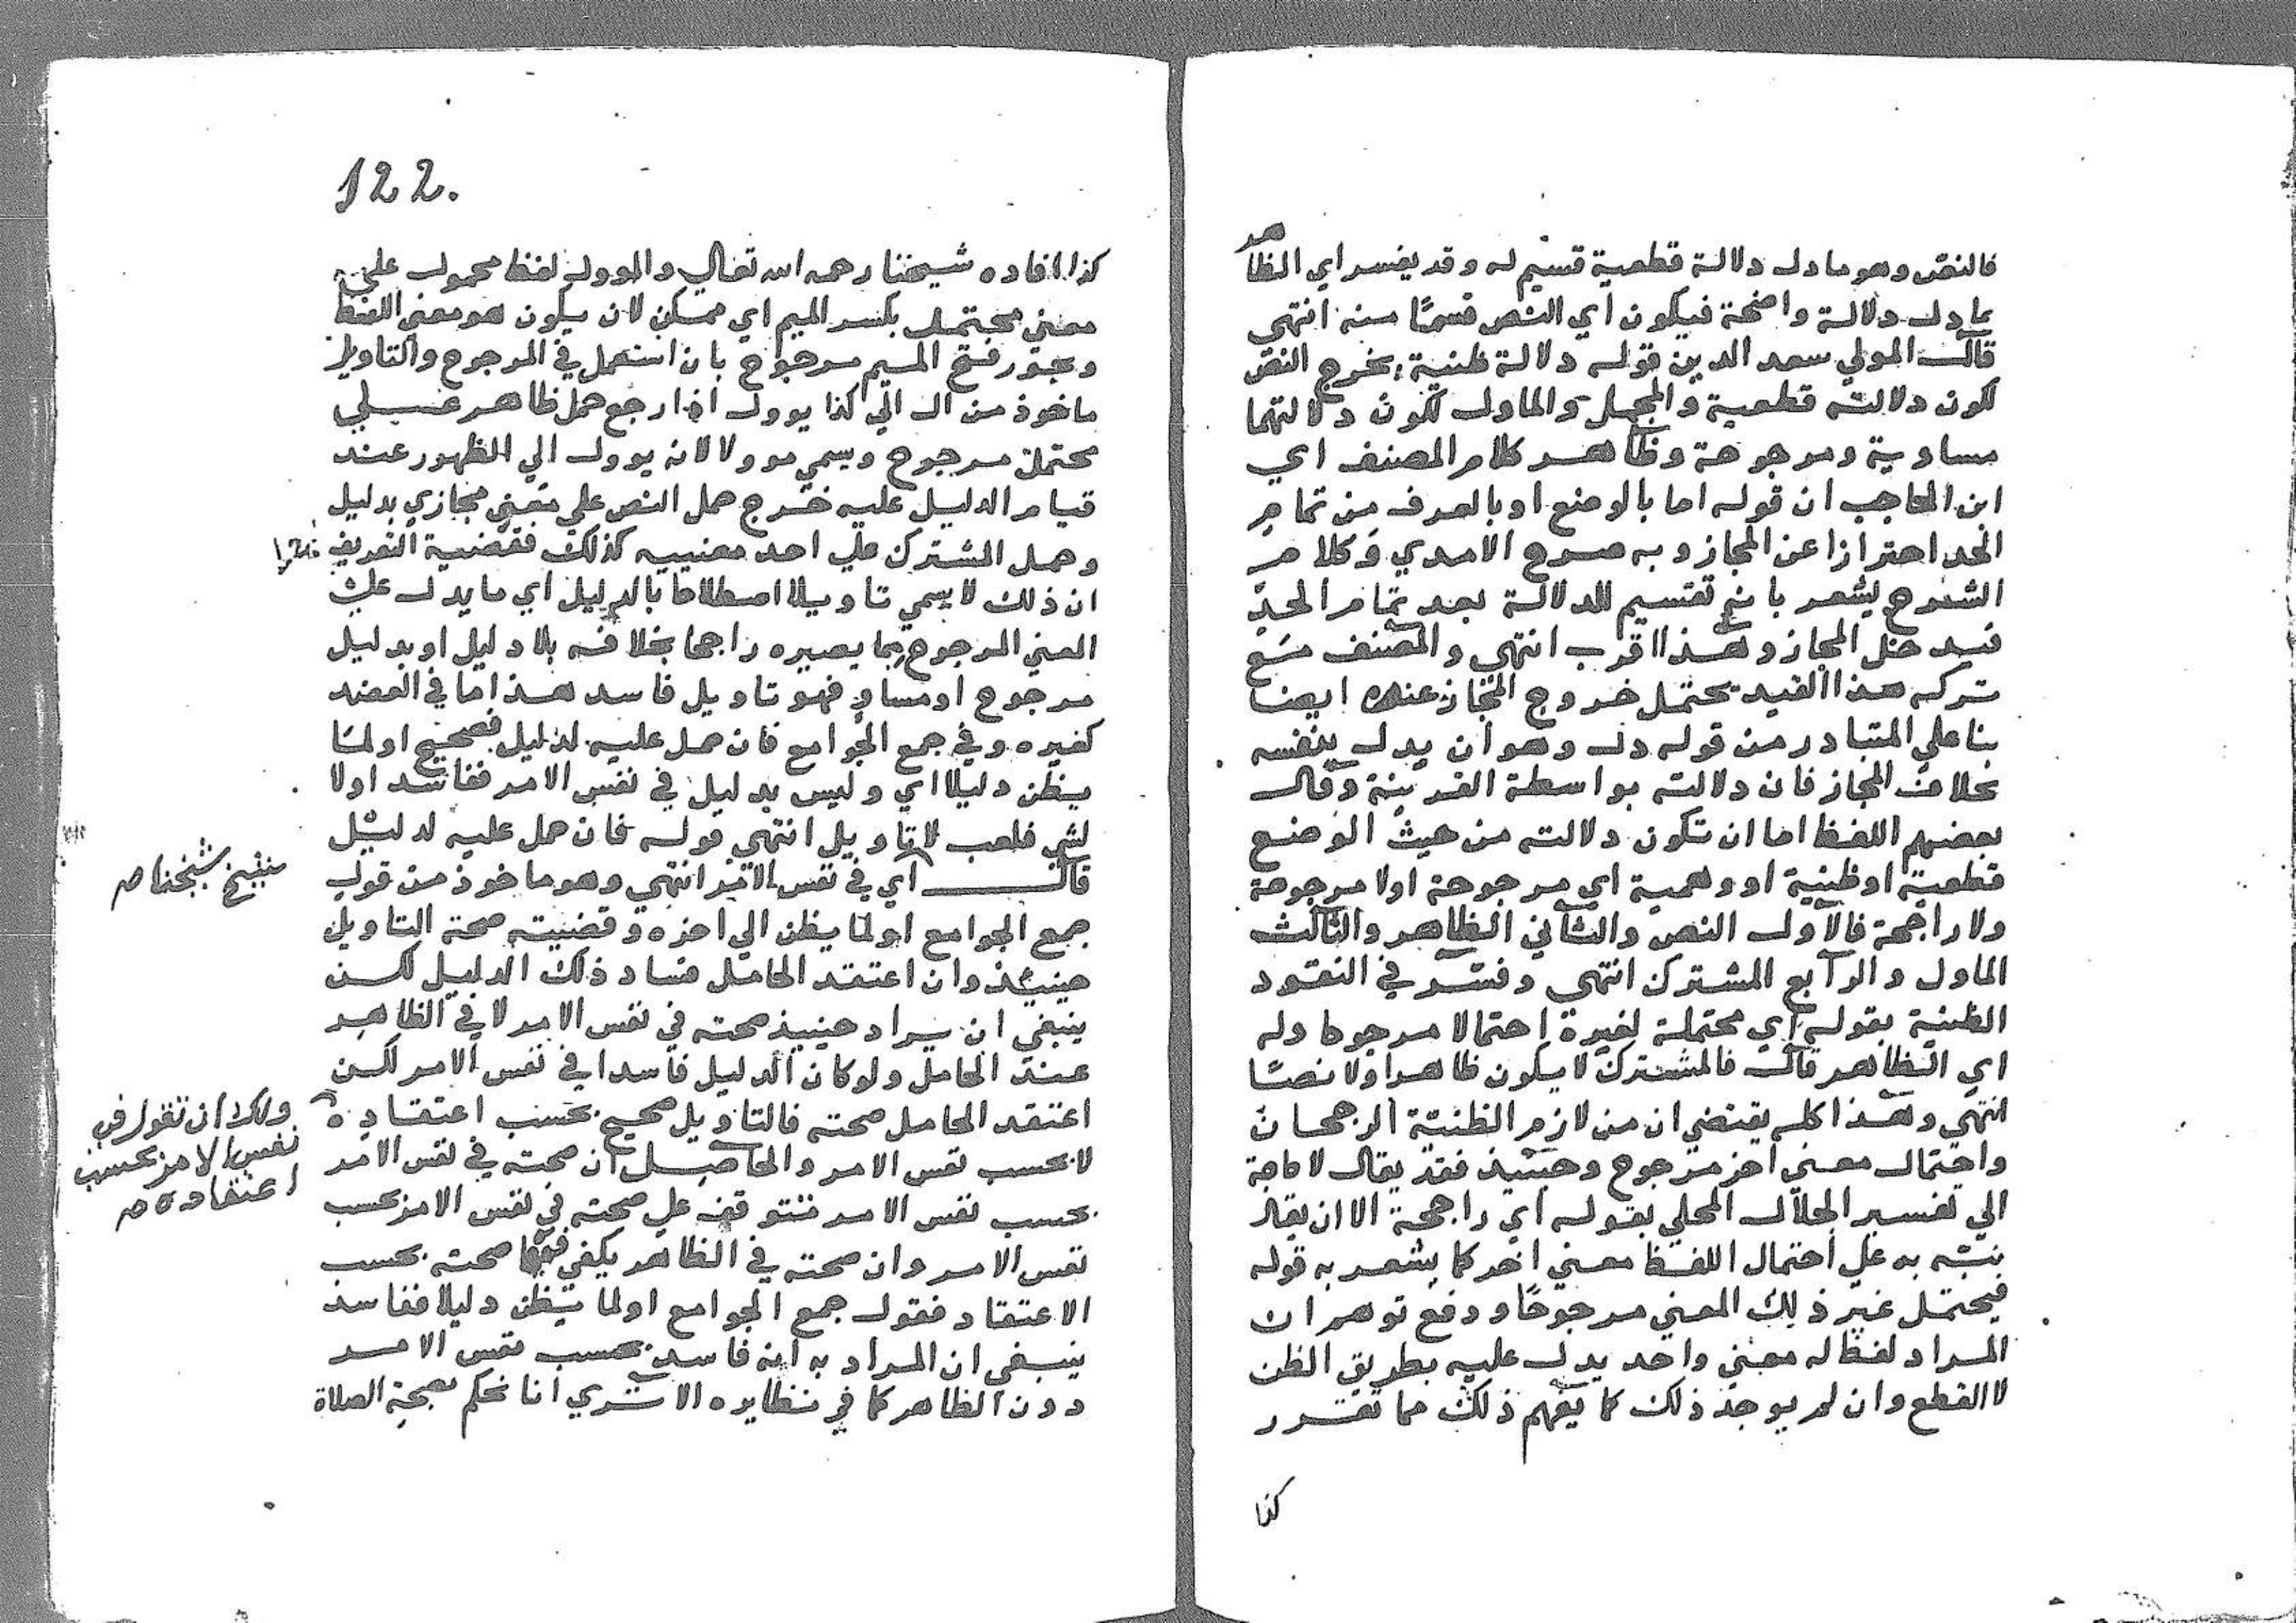 فالنص وهو ما دل دلالة قطعية قسيم له وقد يفسر اي الظاهر
بما دل دلالة واضحة فيكون اي النص قسما منه انتهى
قال المولي سعد الدين قوله دلالة ظنية يخرج النص
لكون دلالته قطعية والمجمل والماول لكون دلالتهما
مساوية ومرجوحة وظاهر كلام المصنف اي
ابن الحاجب ان قوله اما بالوضع او بالعرف من تمام
الحد احترازا عن المجاز وبه صرح الامدي وكلام
الشروح يشعر بانه تقسيم للدلالة بعد تمام الحد
فيدخل المجاز وهذا اقرب انتهى والمصنف مع
تركه هذا القيد يحتمل خروج المجاز عنده ايضا
بنا علي المتبادر من قوله دل وهو ان يدل بنفسه
بخلاف المجاز فان دلالته بواسطة القرينة وقال
بعضهم اللفظ اما ان تكون دلالته من حيث الوضع
قطعية او ظنية او وهمية اي مرجوحة او لا مرجوحة
ولا راجحة فالاول النص والثاني الظاهر والثالث
الماول والرابع المشترك انتهى وفسر في النقود
الظنية بقوله اي محتملة لغيره احتمالا مرجوحا وله
اي الظاهر قال فالمشترك لا يكون ظاهرا ولا نصا
انتهى وهذا كله يقتضي ان من لازم الظنية الرجحان
واحتمال معنى اخر مرجوح وحينيذ فقد يقال لا حاجة
الي تفسير الجلال المحلي بقوله اي راجحة الا ان يقال
نبه به علي احتمال اللفظ معني اخر كما يشعر به قوله
فيحتمل غير ذلك المعني مرجوحا ودفع توهم ان
المراد لفظ له معني واحد يدل عليه بطريق الظن
لا القطع وان لم يوجد ذلك كما يفهم ذلك مما تقرر
كذا
122.
كذا افاده شيخنا رحمه الله تعالي والموول لفظ محمول علي
معني محتمل بكسر الميم اي ممكن لان يكون هو معني اللفظ
ويجوز فتح الميم مرجوح بان استعمل في المرجوح والتاويل
ماخوذ من ال الي كذا يوول اذا رجع حمل ظاهر علي
محتمل مرجوح ويسمي موولا لانه يوول الي الظهور عند
قيام الدليل عليه خرج حمل النص علي معني مجازي بدليل
وحمل المشترك علي احد معنييه كذلك فقضية التعريف
ان ذلك لا يسمي تاويلا اصطلاحا بالدليل اي ما يدل علي
المعني المرجوح بما يصيره راجحا بخلافه بلا دليل او بدليل
مرجوح او مساو فهو تاويل فاسد هذا ما في العضد
كغيره وفي جمع الجوامع فان حمل عليه لدليل فصحيح او لما
يظن دليلا اي وليس بدليل في نفس الامر ففاسد او لا
لشي فلعب لا تاويل انتهى قوله فان حمل عليه لدليل
قال اي في نفس الامر انتهى وهو ماخوذ من قول
شيخ شيخنا صح
جمع الجوامع او لما يظن الي اخره وقضيته صحة التاويل
حينيذ وان اعتقد الحامل فساد ذلك الدليل لكن
ينبغي ان يراد حينيذ صحته في نفس الامر لا في الظاهر
عند الحامل ولو كان الدليل فاسدا في نفس الامر لكن
اعتقد الحامل صحته فالتاويل صحيح بحسب اعتقاده
ولك ان تقول في
نفس الامر بحسب
اعتقاده صح
لا بحسب نفس الامر والحاصل ان صحته في نفس الامر
بحسب نفس الامر تتوقف علي صحته في نفس الامر بحسب
نفس الامر وان صحته في الظاهر يكفي فيها صحته بحسب
الاعتقاد فقول جمع الجوامع او لما يظن دليلا ففاسد
ينبغي ان المراد به انه فاسد بحسب نفس الامر
دون الظاهر كما في نظايره الا تري انا نحكم بصحة الصلاة